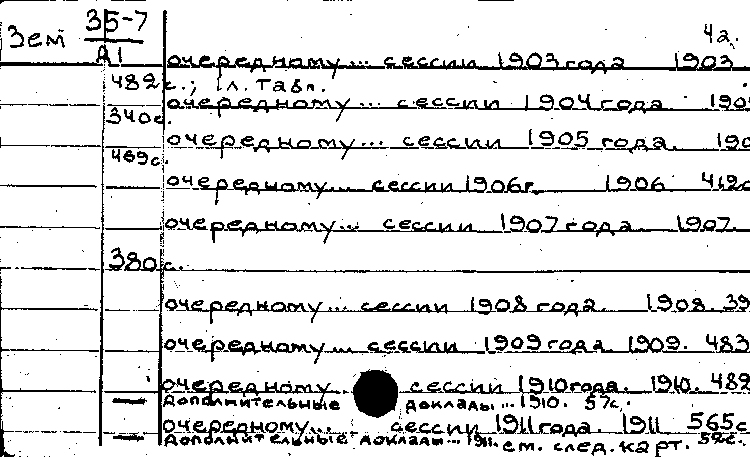 Зем 35-7 4а.
А1 очередному... сессии 1903 года 1903
482 с.; 1 л. табл.
очередному... сессии 1904 года 190
340 с.
очередному... сессии 1905 года. 190
469 с.
очередному... сессии 1906г. 1906 412с
очередному... сессии 1907 года. 1907.
380 с.
очередному... сессии 1908 года. 1908. 39
очередному... сессии 1909 года. 1909. 483
очередному... сессии 1910 года. 1910. 482
— Дополнительные доклады... 1910. 57с.
очередному... сессии 1911 года. 1911 565с
— Дополнительные доклады... 1911. см. след. карт. 52с.